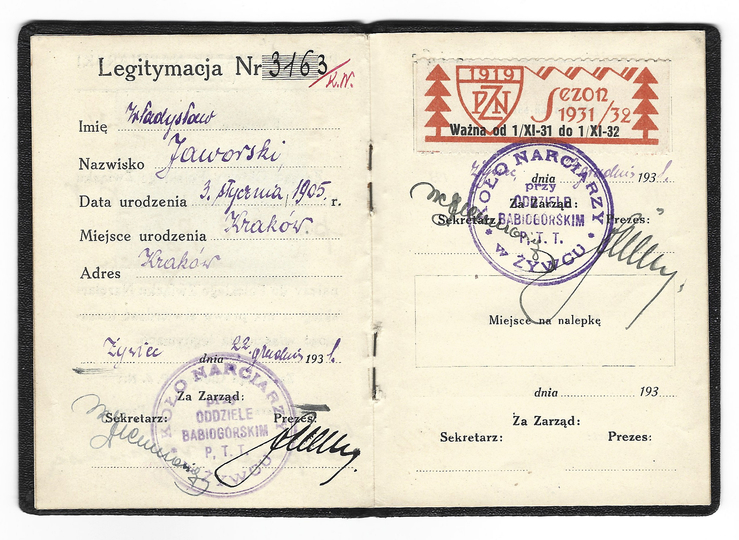 Legitymacja Nr 3163
K.N.
Imię Władysław
Nazwisko Jaworski
Data urodzenia 3. stycznia, 1905 r.
Miejsce urodzenia Kraków.
Adres Kraków
Żywiec dnia 22. grudnia 1931.
Za Zarząd:
Sekretarz: Prezes:
KOŁO NARCIARZY
przy
ODDZIELE
BABIOGÓRSKIM
P. T. T.
W ŻYWCU
1919
PZN
Sezon
1931/32
Ważna od 1/XI-31 do 1/XI-32
dnia grudnia 1931.
Za Zarząd:
Sekretarz: Prezes:
KOŁO NARCIARZY
przy
ODDZIELE
BABIOGÓRSKIM
P. T. T.
W ŻYWCU
Miejsce na nalepkę
dnia 193
Za Zarząd:
Sekretarz: Prezes: